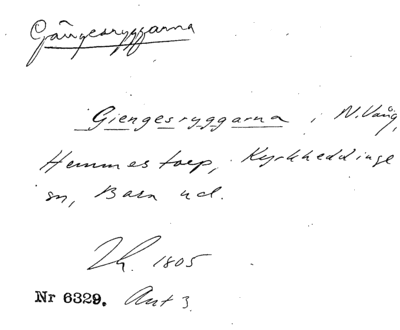 Gängesryggarna
Giengesryggarna i N. Vång,
Hemmestorp, Kyrkheddinge
sn, Bara hd.
Lh. 1805
Nr 6329. Akt 3.